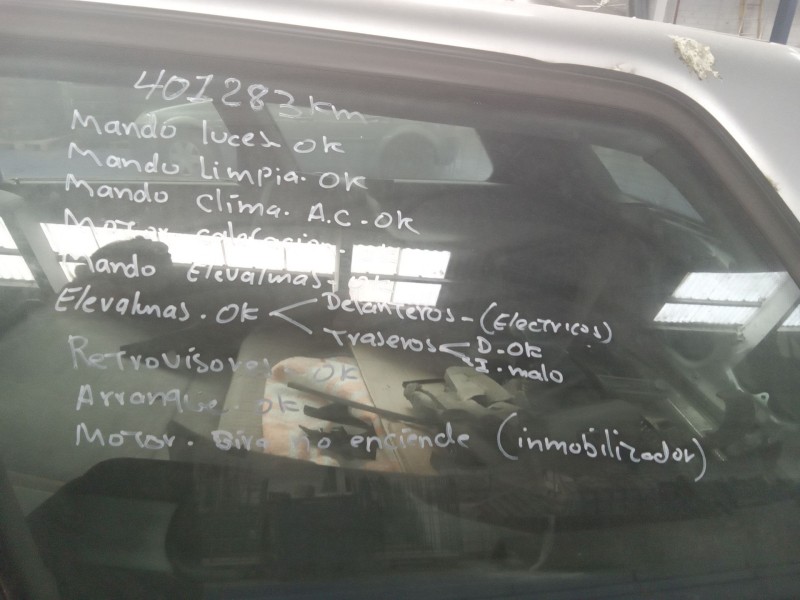 401283 km
Mando luces OK
Mando Limpia. OK
Mando Clima. A.C. OK
Motor calefacion.
Mando Elevalunas. OK
Elevalunas. OK < Delanteros - (Electricos)
Traseros < D. OK
I. malo
Retrovisores. OK
Arranque. OK
Motor. Gira no enciende (inmobilizador)